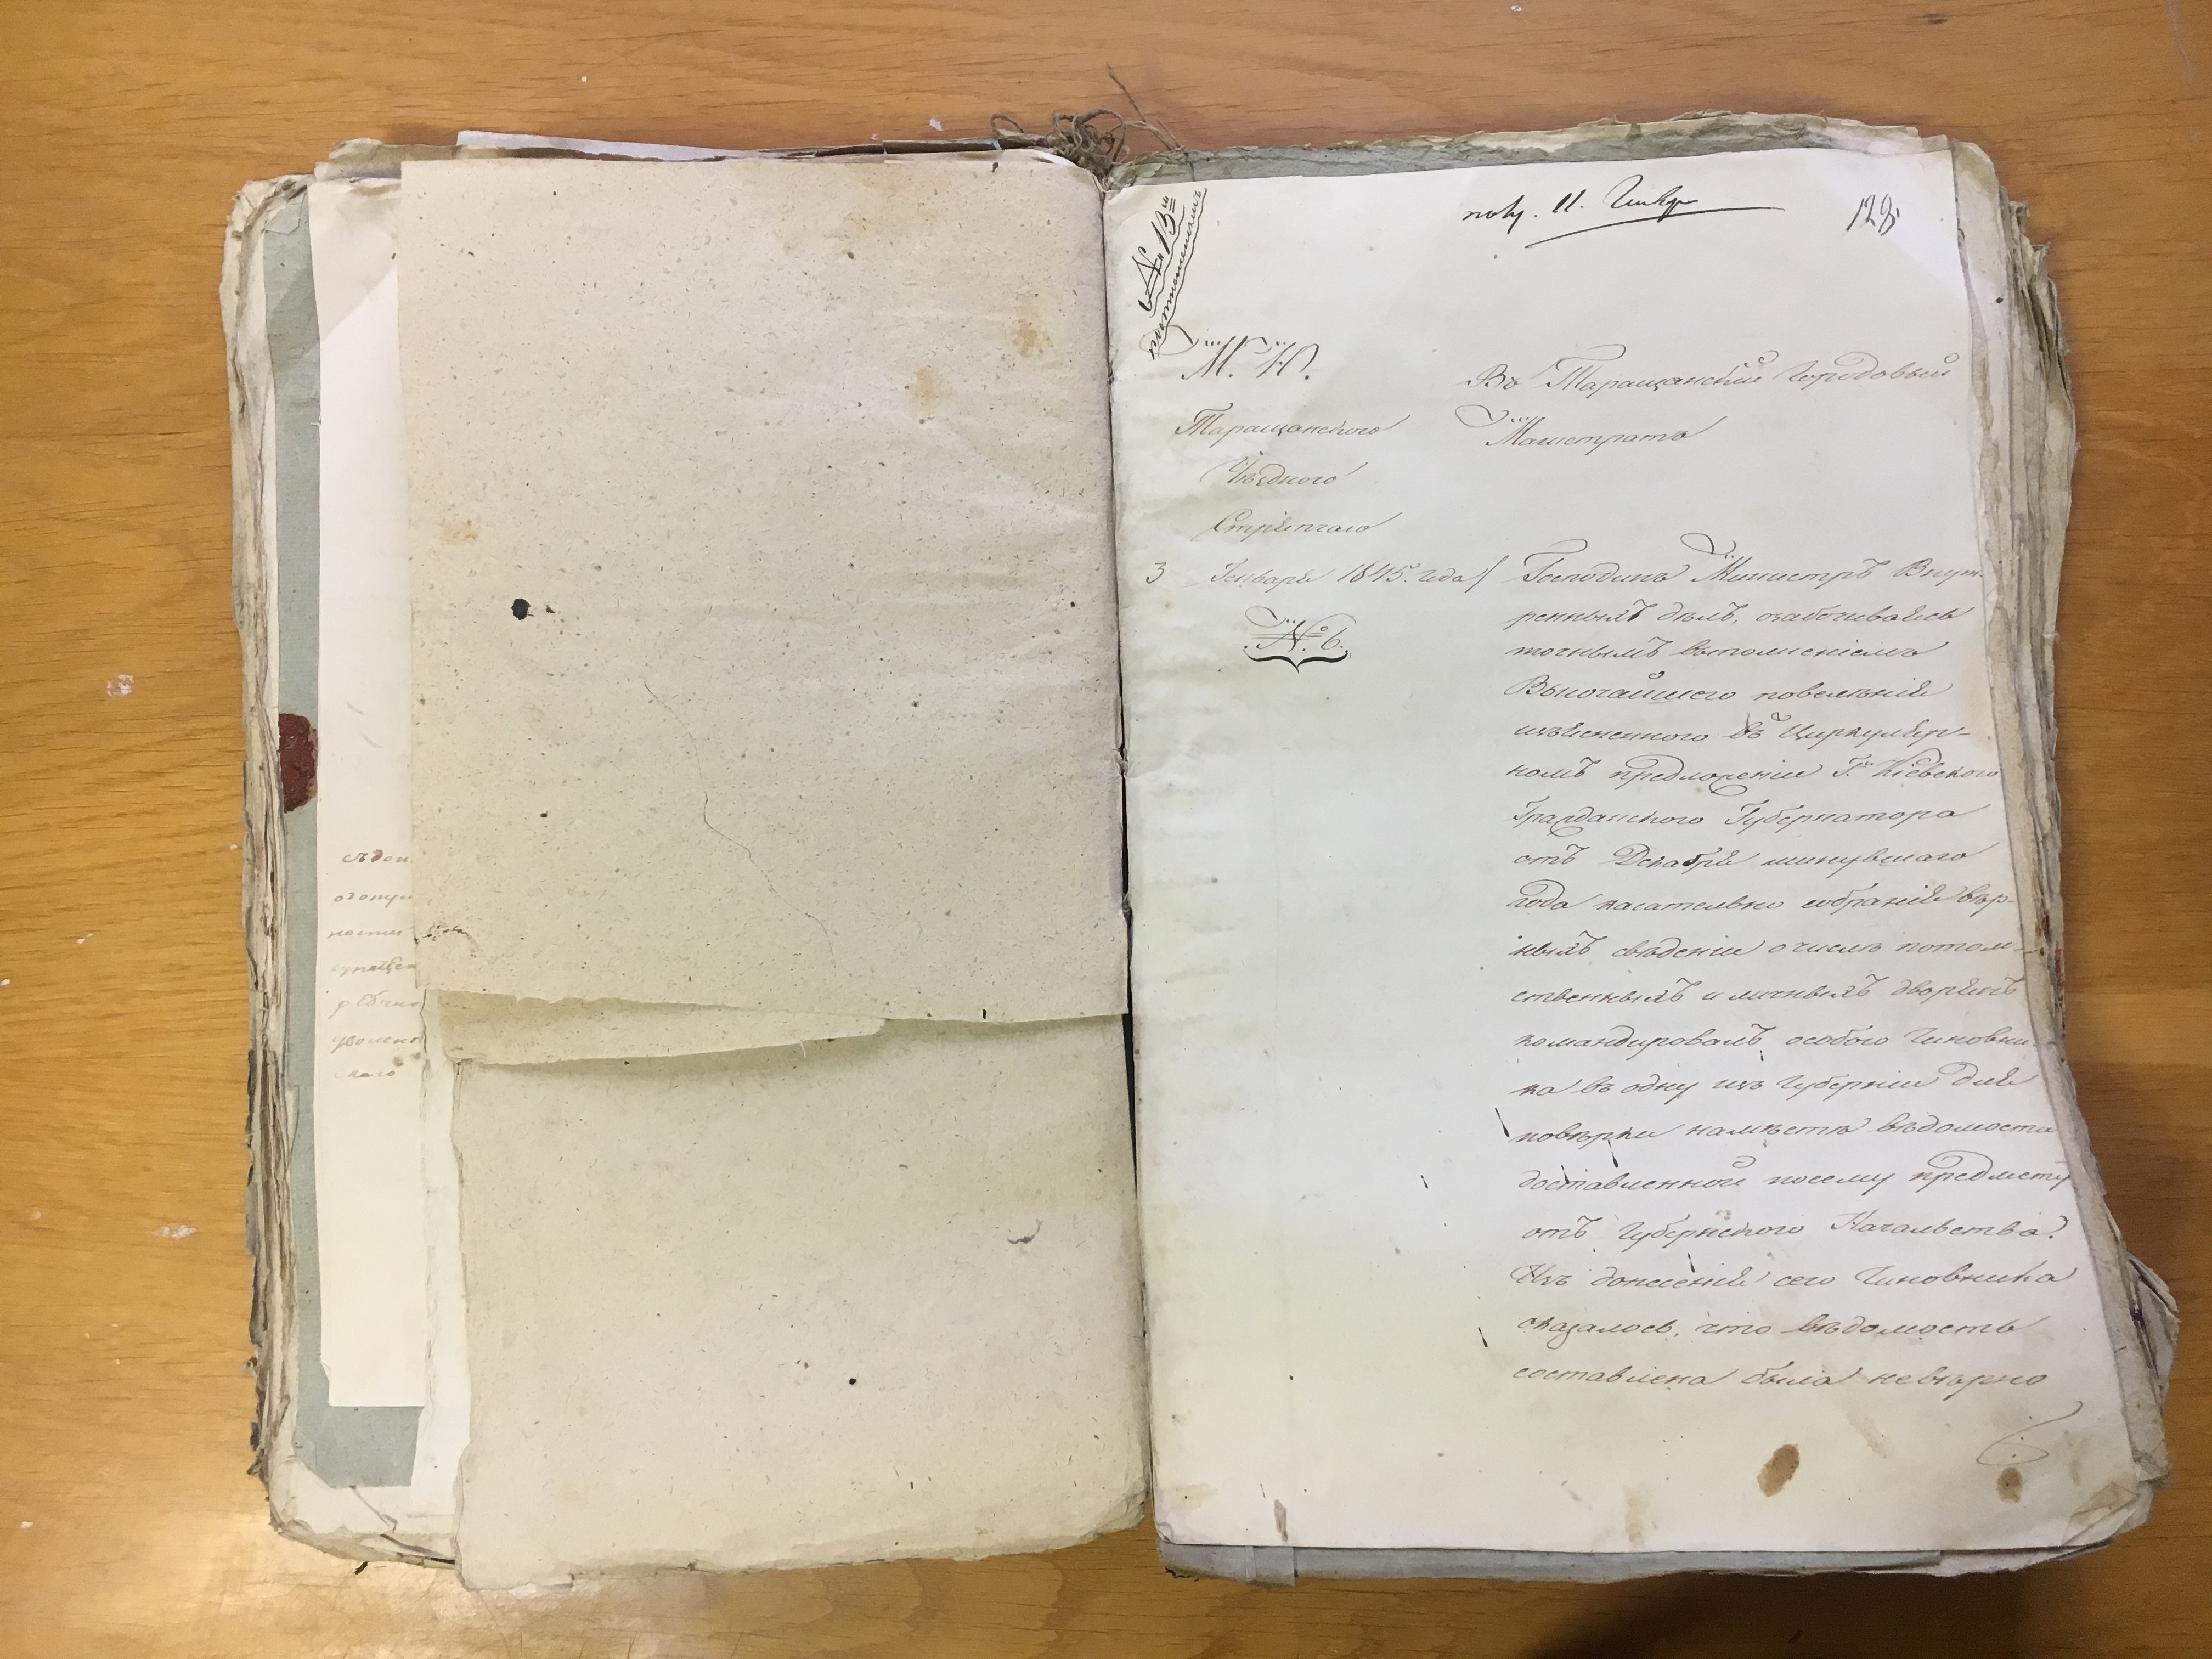 съдон
ности
уволен
маго
пол. 11. Генвр
128.
№ 13й
М. Ю.
Таращанскаго
Уѣзднаго
Стряпчаго
3 Генваря 1845. года
№. 6.
Въ Таращанскій Городовый
Магистратъ
Господинъ Министръ Внут-
реннихъ дѣлъ, озабочиваясь
точнымъ выполненіемъ
Высочайшего повелѣнія
изъясненного въ Циркуляр-
номъ предложеніи Гна Кіевского
Гражданского Губернатора
отъ Декабря минувшаго
года касательно собранія вѣр-
ныхъ свѣденіи о числѣ потом-
ственныхъ и личныхъ дворянъ
командировалъ особого Чиновни-
ка въ одну изъ Губерніи для
повѣрки намѣстѣ вѣдомости
доставленной посему предмету
отъ Губернского Начальства.
Изъ донесенія сего Чиновника
оказалось, что вѣдомость
составлена была невѣрно